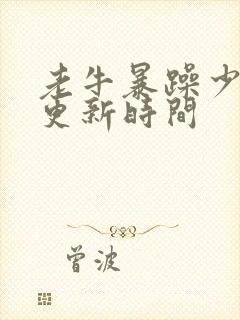 老牛暴躁少
更新時間
曾波